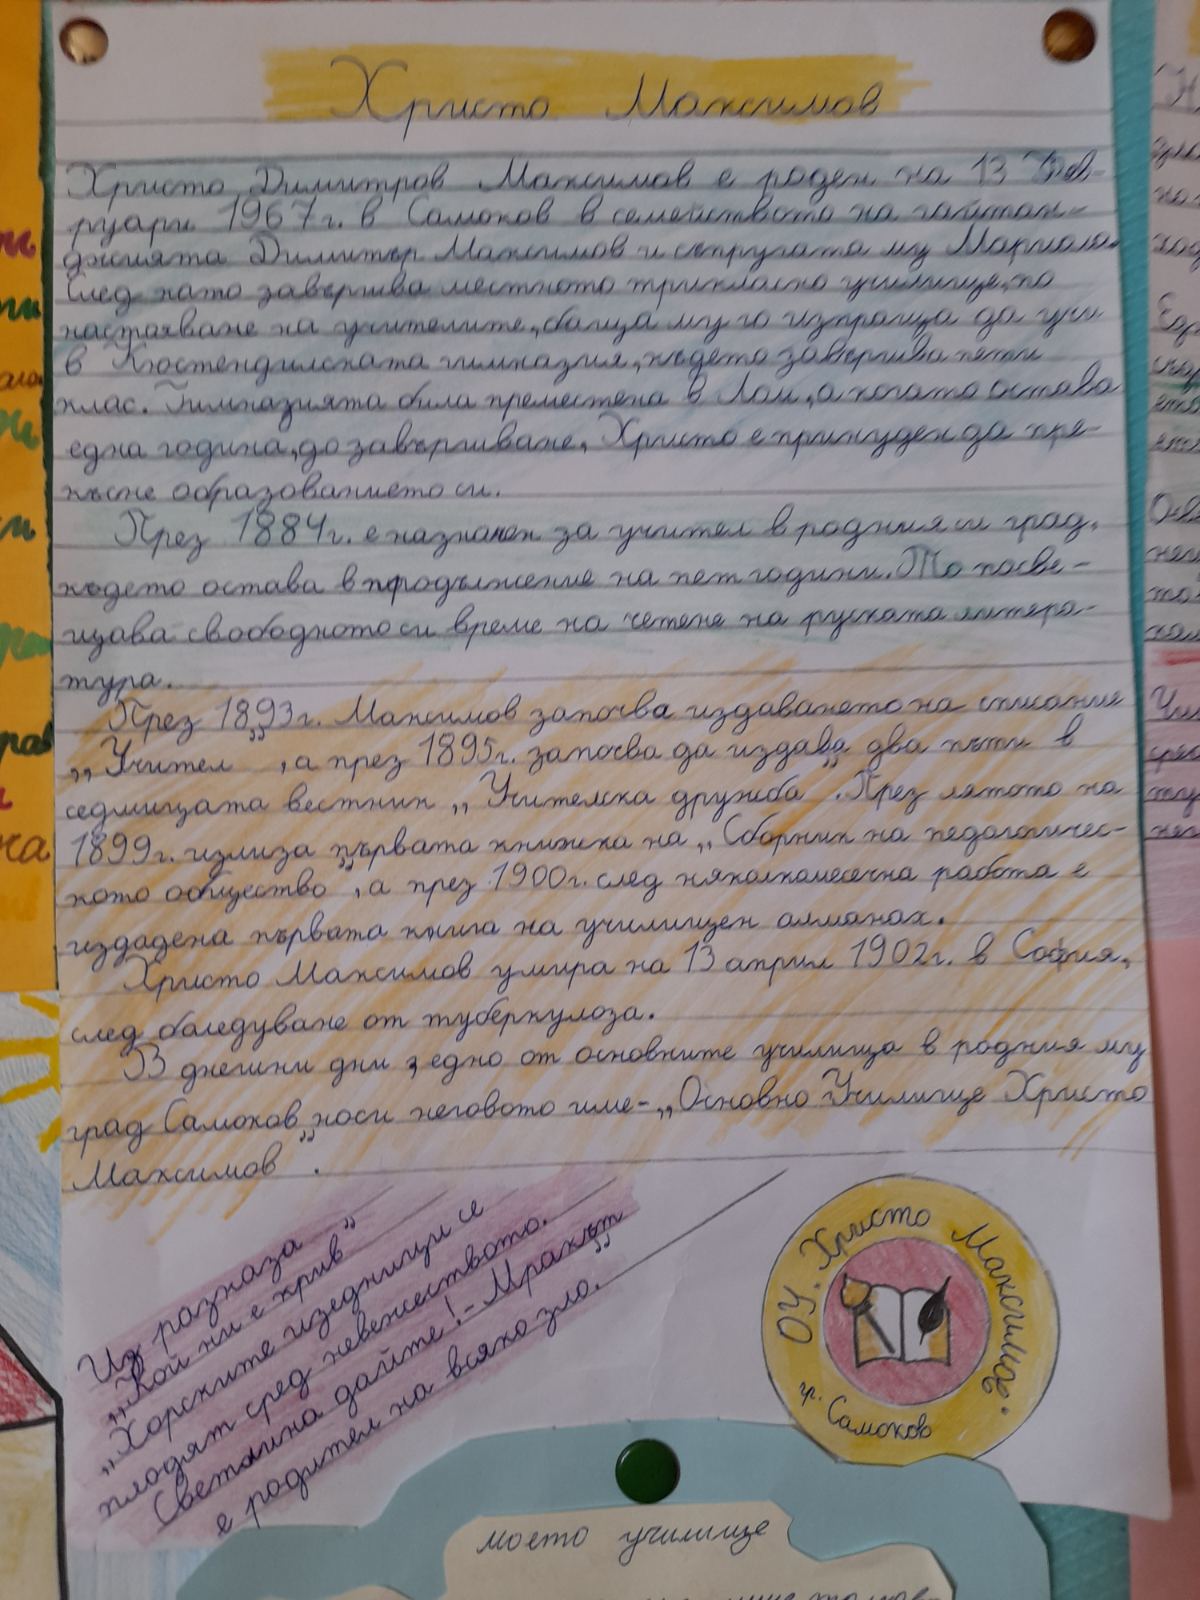 Христо Максимов
Христо Димитров Максимов е роден на 13 Фев-
руари 1967г. в Самоков в семейството на гайтан-
джията Димитър Максимов и съпругата му Мариола.
След като завършва местното трикласно училище, по
настояване на учителите, баща му го изпраща да учи
в Кюстендилската гимназия, където завършва пети
клас. Гимназията била преместена в Лом, а когато остава
една година, до завършване, Христо е принуден да пре-
късне образованието си.
През 1884г. е назначен за учител в родния си град,
където остава в продължение на пет години. То посве-
щава свободното си време на четене на руската литера-
тура.
През 1893г. Максимов започва издаването на списание
„Учител", а през 1895г. започва да издава два пъти в
седмицата вестник „Учителска дружба". През лятото на
1899г. излиза първата книжка на „Сборник на педагогичес-
кото общество", а през 1900г. след няколкомесечна работа е
издадена първата книга на училищен алманах.
Христо Максимов умира на 13 април 1902г. в София,
след боледуване от туберкулоза.
В днешни дни, едно от основните училища в родния му
град Самоков носи неговото име-„Основно Училище Христо
Максимов".
Из разказа
„Кой ни е крив"
„Хорските изедници се
плодят сред невежеството.
Светлина дайте! - Мракът
е родител на всяко зло."
ОУ. Христо Максимов.
гр. Самоков
моето училище